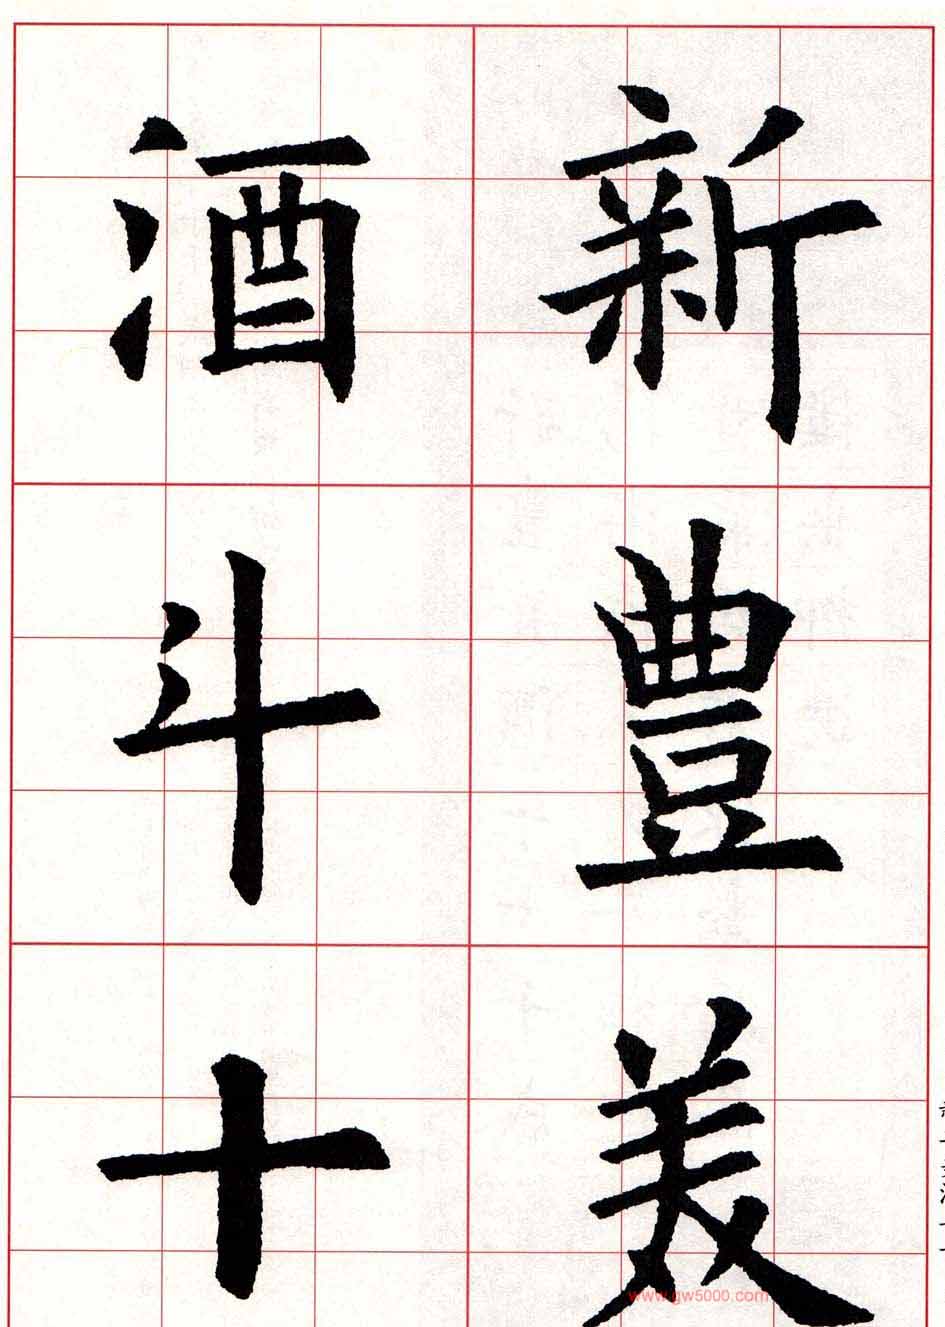 新豐美
酒斗十
www.gw5000.com